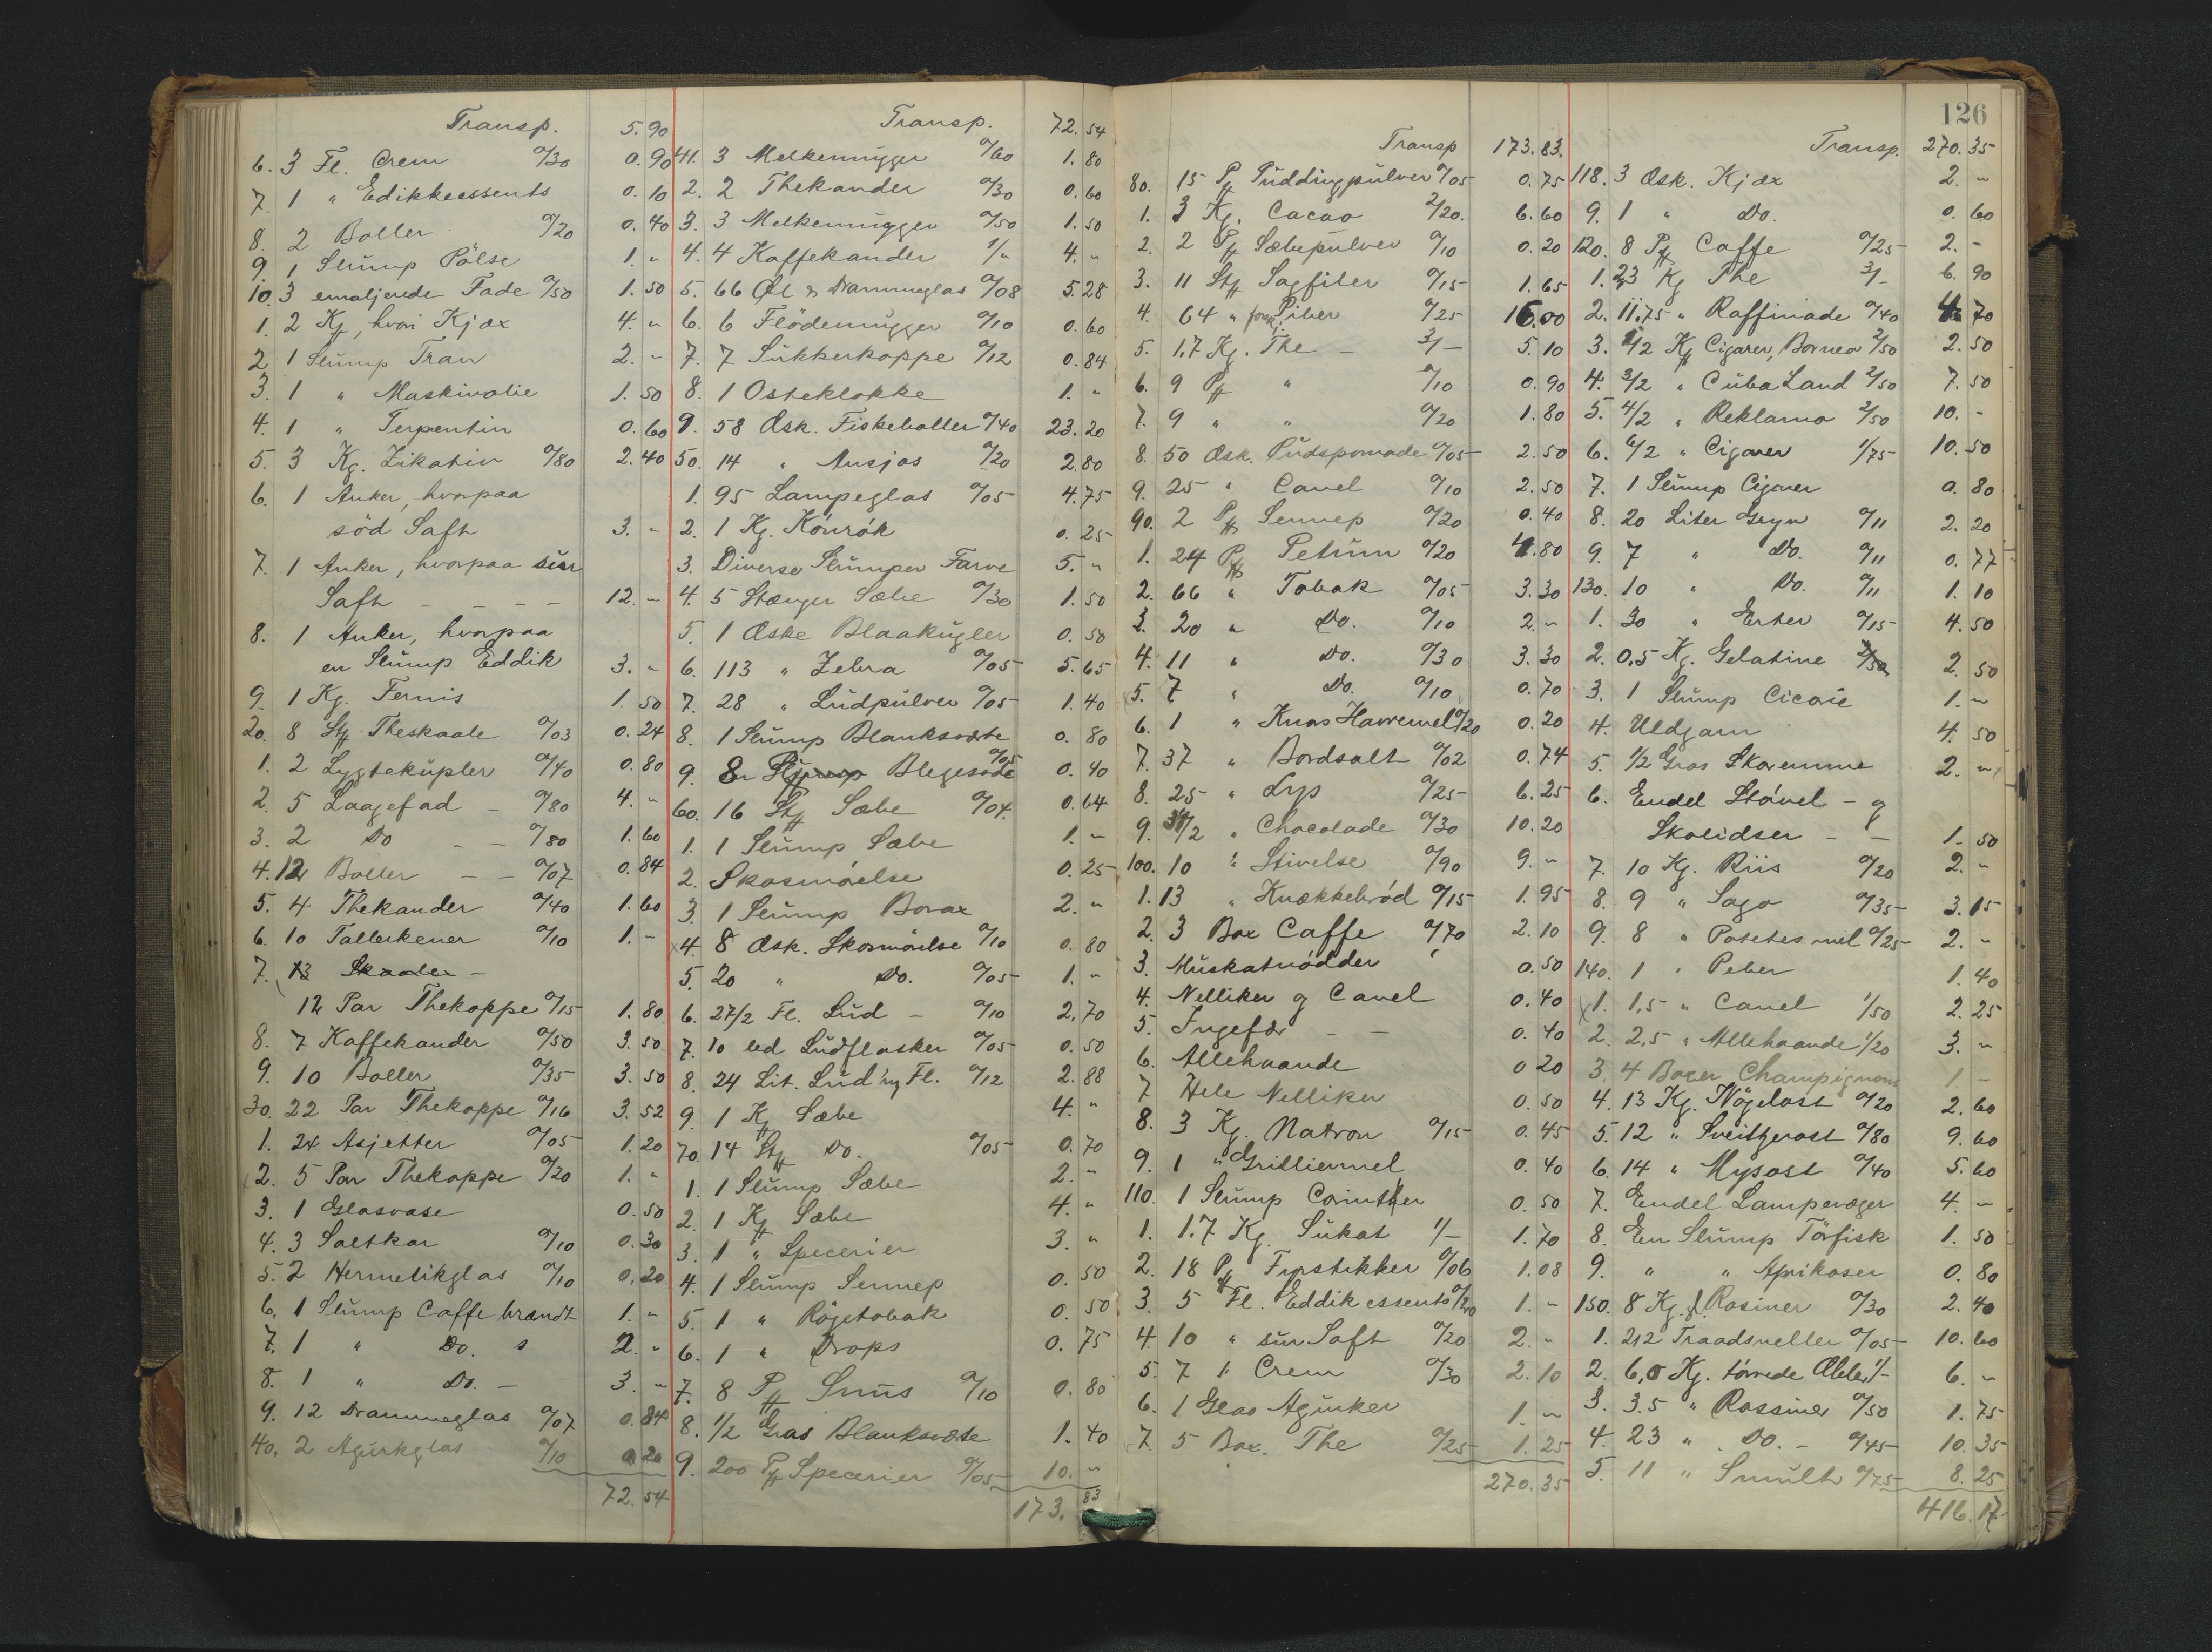 Transp. 5.90
6. 3 Fl. Crem 0/30 0.90
7. 1 " Edikkeessents 0.10
8. 2 Boller 0/20 0.40
9. 1 Slump Pölse 1. "
10. 3 emaljerede Fade 0/50 1.50
1. 2 Kg, hvori Kjæx 4. "
2. 1 Slump Tran 2. "
3. 1 " Maskinolie 1.50
4. 1 " Terpentin 0.60
5. 3 Kg. Zikativ 0/80 2.40
6. 1 Anker, hvorpaa
söd Saft 3. "
7. 1 Anker, hvorpaa sur
Saft - - - - 12. "
8. 1 Anker, hvorpaa
en Slump Eddik 3. "
9. 1 Kg. Fernis 1.50
20. 8 Stk Theskaale 0/03 0.24
1. 2 Lygtekupler 0/40 0.80
2. 5 Laagefad - 0/80 4. "
3. 2 Do - - 0/80 1.60
4. 12 Boller - - 0/07 0.84
5. 4 Thekander 0/40 1.60
6. 10 Tallerkener 0/10 1. -
7. 13 Skaaler -
12 Par Thekoppe 0/15 1.80
8. 7 Kaffekander 0/50 3.50
9. 10 Boller 0/35 3.50
30. 22 Par Thekoppe 0/16 3.52
1. 24 Asjetter 0/05 1.20
2. 5 Par Thekoppe 0/20 1. "
3. 1 Glasvase 0.50
4. 3 Saltkar 0/10 0.30
5. 2 Hermetikglas 0/10 0.20
6. 1 Slump Caffe brændt 1. "
7. 1 " Do. s 2. "
8. 1 " Do. - 3. "
9. 12 Drammeglas 0/07 0.84
40. 2 Agurkglas 0/10 0.20
72.54
Transp. 72.54
41. 3 Melkemugger 0/60 1.80
2. 2 Thekander 0/30 0.60
3. 3 Melkemugger 0/50 1.50
4. 4 Kaffekander 1/" 4. "
5. 66 Øl & Drammeglas 0/08 5.28
6. 6 Flödemugger 0/10 0.60
7. 7 Sukkerkoppe 0/12 0.84
8. 1 Osteklokke 1. "
9. 58 Æsk. Fiskeboller 0/40 23.20
50. 14 " Ansjos 0/20 2.80
1. 95 Lampeglas 0/05 4.75
2. 1 Kg. Könrök 0.25
3. Diverse Slumper Farve 5. "
4. 5 Stænger Sæbe 0/30 1.50
5. 1 Æske Blaakugler 0.50
6. 113 " Zebra 0/05 5.65
7. 28 " Ludpulver 0/05 1.40
8. 1 Slump Blanksværte 0.80
9. 8 Blegesoda 0/05 0.40
60. 16 Stk Sæbe 0/04 0.64
1. 1 Slump Sæbe 1. -
2. Skosmörelse 0.25
3. 1 Slump Borax 2. "
4. 8 Æsk. Skosmörelse 0/10 0.80
5. 20 " Do. 0/05 1. "
6. 27/2 Fl. Lud - 0/10 2.70
7. 10 led Ludflasker 0/05 0.50
8. 24 Lit. Lud og Fl. 0/12 2.88
9. 1 Kg Sæbe 4. "
70. 14 Stk Do. 0/05 0.70
1. 1 Slump Sæbe 2. "
2. 1 Kg Sæbe 4. "
3. 1 " Specerier 3. "
4. 1 Slump Sennep 0.50
5. 1 " Rögetobak 0.50
6. 1 " Drops 0.75
7. 8 Pk Snus 0/10 0.80
8. 1/2 Gros Blanksværte 1.40
9. 200 Pk Specerier 0/05 10. "
173.83
Transp 173.83.
80. 15 Pk Puddingpulver 0/05 0.75
1. 3 Kg. Cacao 2/20. 6.60
2. 2 Pk Sæbepulver 0/10 0.20
3. 11 Stk Sagfiler 0/15 1.65
4. 64 " Piber 0/25 16.00
5. 1.7 Kg. The - 3/- 5.10
6. 9 Pk " 0/10 0.90
7. 9 " " 0/20 1.80
8. 50 Æsk. Pudspomade 0/05 2.50
9. 25 " Canel 0/10 2.50
90. 2 Pk Sennep 0/20 0.40
1. 24 Pk Petrum 0/20 4.80
2. 66 " Tobak 0/05 3.30
3. 20 " Do. 0/10 2. "
4. 11 " Do. 0/30 3.30
5. 7 " Do. 0/10 0.70
6. 1 " Knas Havremel 0/20 0.20
7. 37 " Bordsalt 0/02 0.74
8. 25 " Lys 0/25 6.25
9. 34/2 " Chocolade 0/30 10.20
100. 10 " Stivelse 0/90 9. "
1. 13 " Knækkebröd 0/15 1.95
2. 3 Box Caffe 0/70 2.10
3. Muskatnödder 0.50
4. Nelliker og Canel 0.40
5. Ingefær - - 0.40
6. Allehaande 0 20
7 Hele Nelliker 0.50
8. 3 Kg. Natron 0/15 0.45
9. 1 " Grilliermel 0.40
110. 1 Slump Corinther 0.50
1. 1.7 Kg. Sukat 1/- 1.70
2. 18 Pk Fyrstikker 0/06 1.08
3. 5 Fl. Eddikessents 0/20 1. -
4. 10 " sur Saft 0/20 2. -
5. 7 " Crem 0/30 2.10
6. 1 Glas Agurker 1. "
7. 5 Box. The 0/25 1.25
270.35
126
Transp. 270.35
118. 3 Æsk. Kjæx 2. "
9. 1 " Do. 0.60
120. 8 Pk Caffe 0/25 2. -
1. 2,3 Kg The 3/- 6.90
2. 11.75 " Raffinade 0/40 4.70
3. 1/2 Kg Cigarer, Borneo 2/50 2.50
4. 3/2 " Cuba Land 2/50 7.50
5. 4/2 " Reklamo 2/50 10. -
6. 6/2 " Cigarer 1/75 10.50
7. 1 Slump Cigarer 0.80
8. 20 Liter Gryn 0/11 2.20
9. 7 " Do. 0/11 0.77
130. 10 " Do. 0/11 1.10
1. 30 " Erter 0/15 4.50
2. 0,5 Kg. Gelatine 2.50
3. 1 Slump Cicorie 1. "
4. Uldgarn 4.50
5. 1/2 Gros Skoremme 2. "
6. Endel Stövel - og
Skolidser - - 1.50
7. 10 Kg. Riis 0/20 2. "
8. 9 " Sago 0/35 3.15
9. 8 " Potetesmel 0/25 2. "
140. 1 " Peber 1.40
1. 1,5 " Canel 1/50 2.25
2. 2,5 " Allehaande 1/20 3. "
3. 4 Boxer Champignons 1. -
4. 13 Kg. Nögelost 0/20 2.60
5. 12 " Sveitzerost 0/80 9.60
6. 14 " Mysost 0/40 5.60
7. Endel Lampevæger 4. "
8. En Slump Törfisk 1.50
9. " " Aprikoser 0.80
150. 8 Kg. Rosiner 0/30 2.40
1. 212 Traadsneller 0/05 10.60
2. 6,0 Kg. törrede Æbler 1/- 6. "
3. 3.5 " Rossiner 0/50 1.75
4. 23 " Do. - 0/45 10.35
5. 11 " Smult 0/75 8.25
416.17